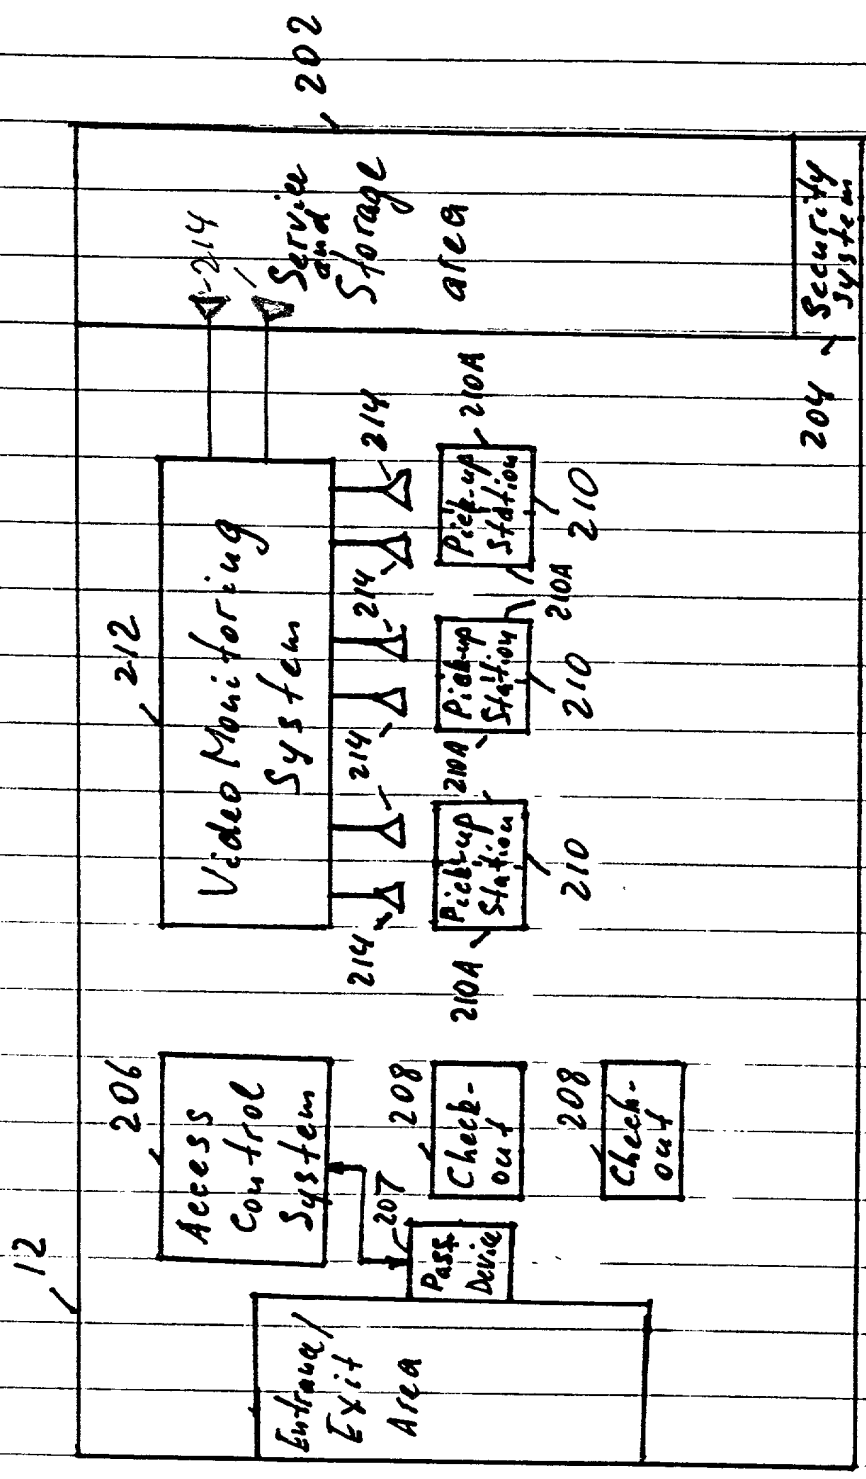 12
Entrance/
Exit
Area
Pass
Device
207
206
Access
Control
System
208
Check-
out
208
Check-
out
212
Video Monitoring
System
214
214
214
214
214
210A
Pick-up
Station
210
210A
Pick-up
Station
210
210A
210A
Pick-up
Station
210
210A
202
Service
and
Storage
area
204
Security
System